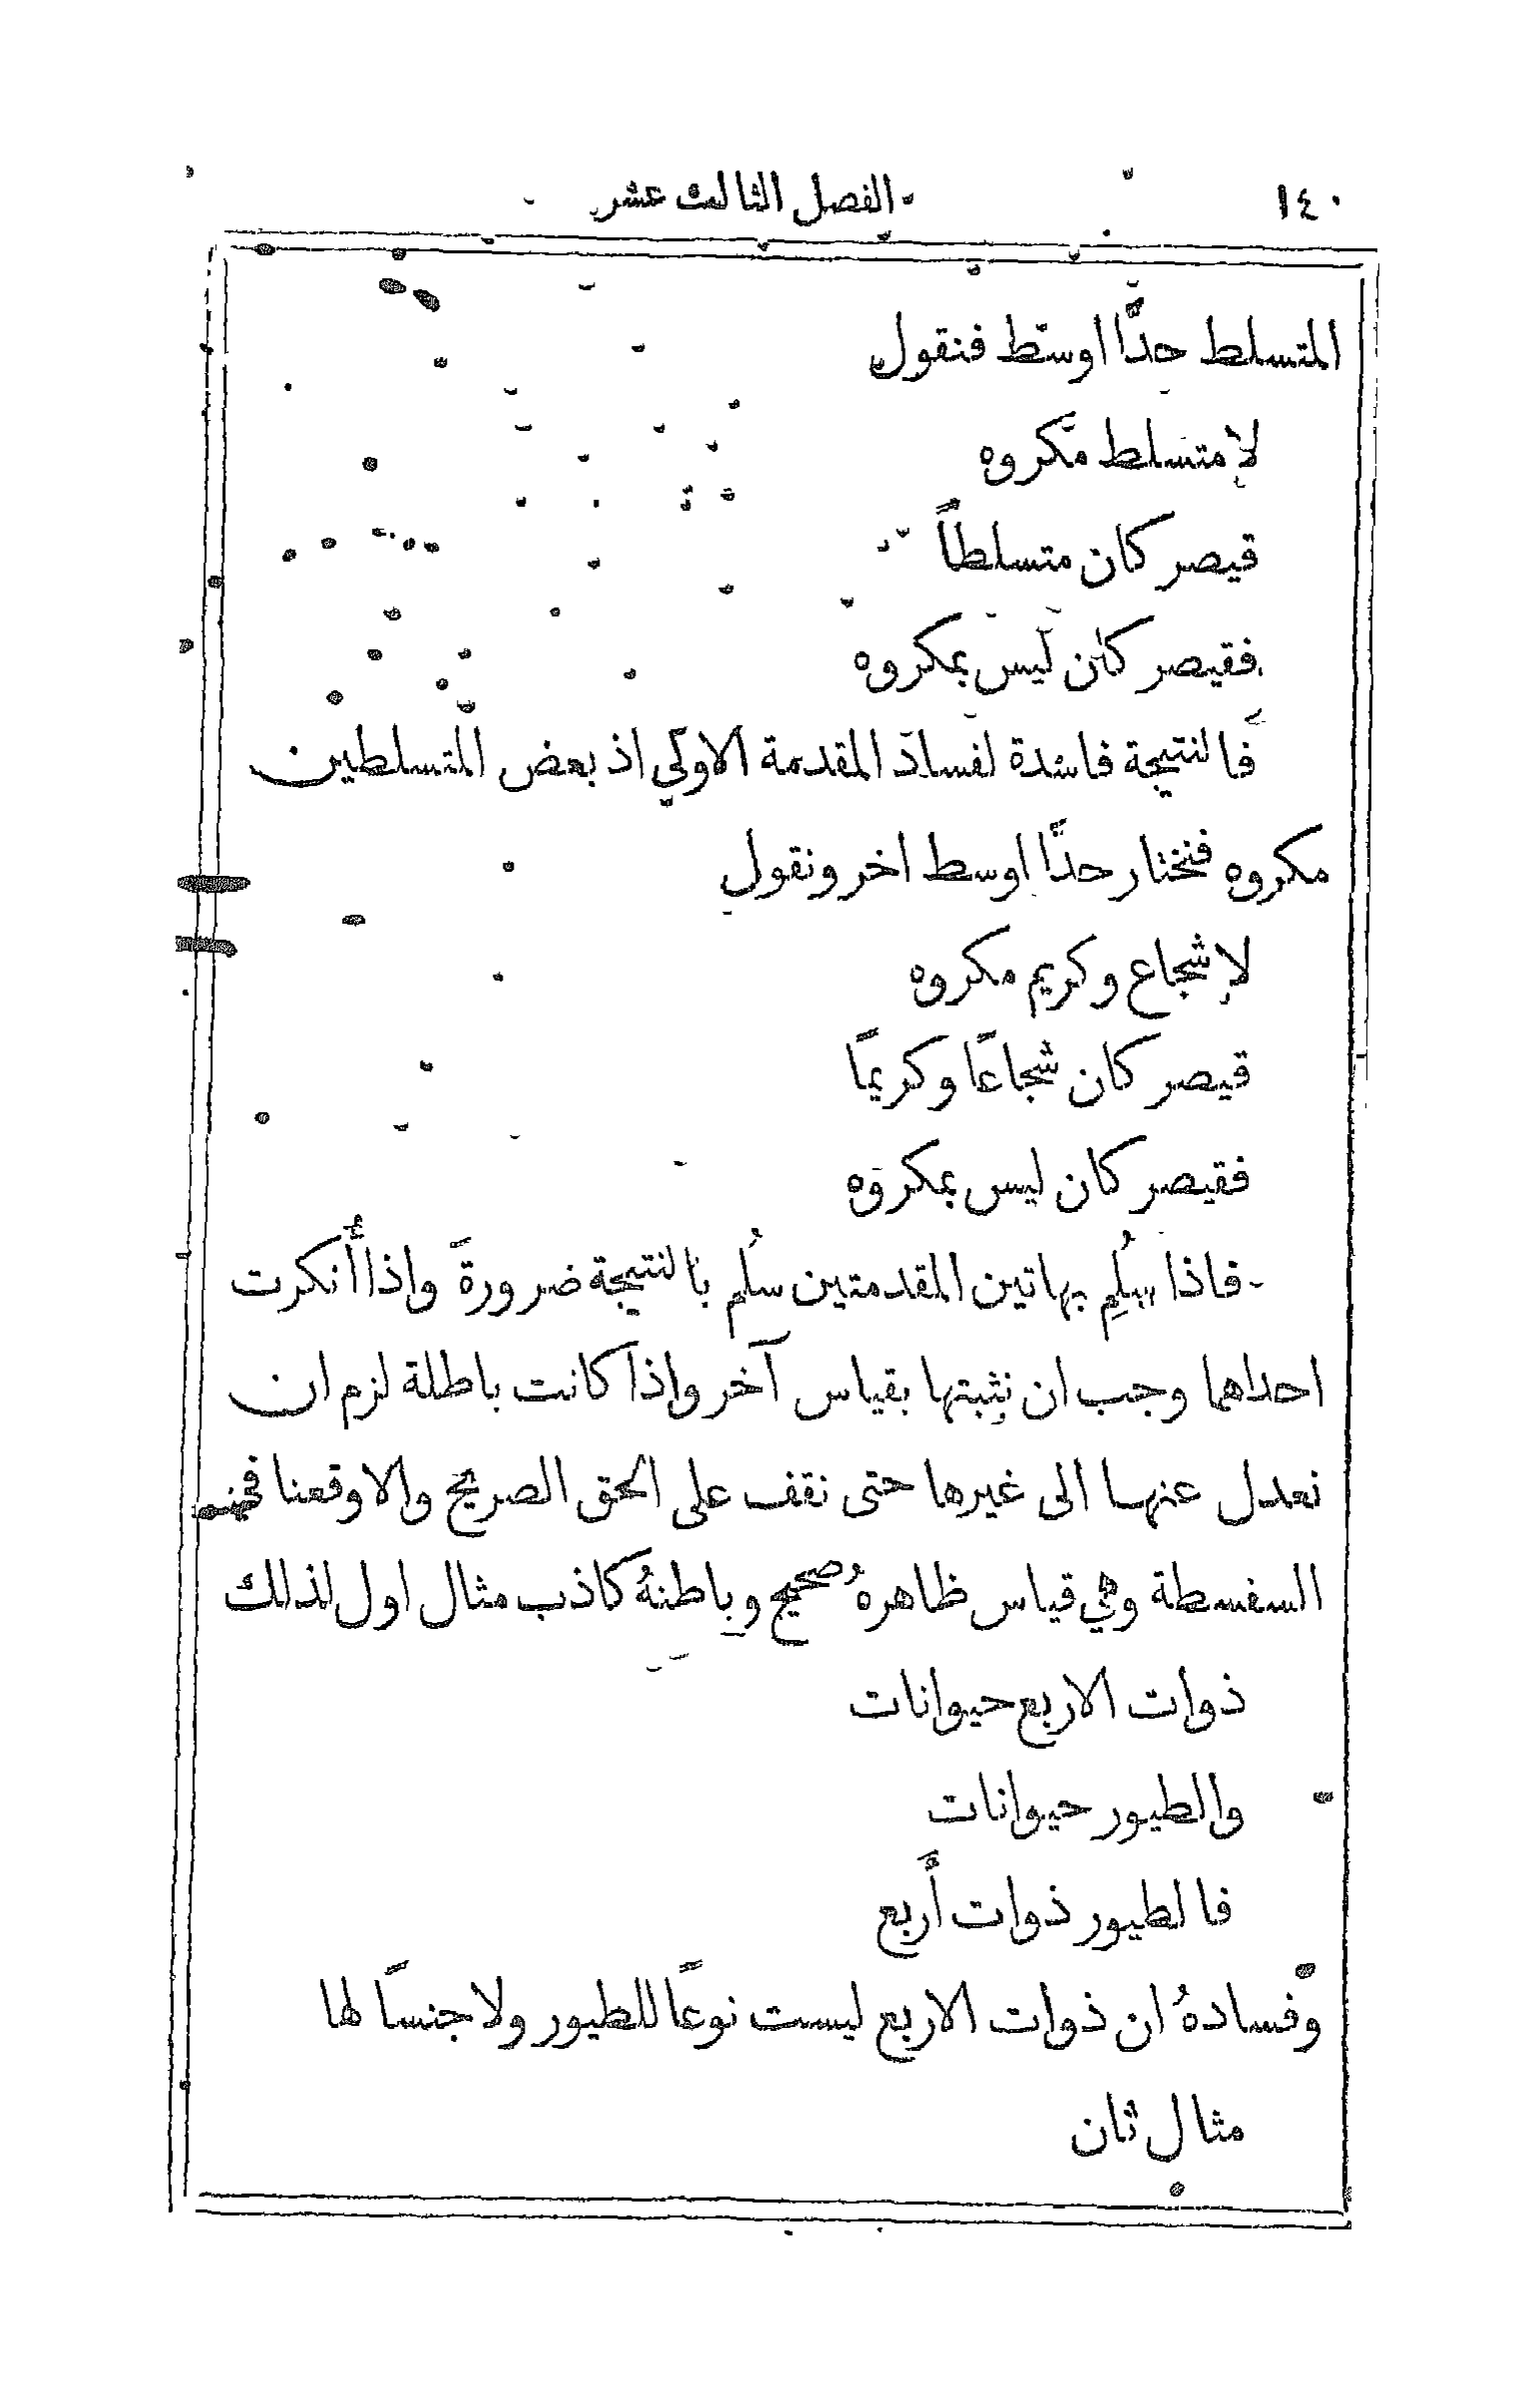 ١٤٠ الفصل الثالث عشر
المتسلط حدًّا اوسط فنقول
لا متسلط مكروه
قيصر كان متسلطاً
فقيصر كان ليس بمكروه
فالنتيجة فاسدة لفساد المقدمة الاولى اذ بعض المتسلطين
مكروه فنختار حدًّا اوسط اخر ونقول
لا شجاع وكريم مكروه
قيصر كان شجاعًا وكريمًا
فقيصر كان ليس بمكروه
فاذا سُلِم بهاتين المقدمتين سُلم بالنتيجة ضرورة واذا أنكرت
احداهما وجب ان نثبتها بقياس آخر واذا كانت باطلة لزم ان
نعدل عنها الى غيرها حتى نقف على الحق الصريح والا وقعنا في
السفسطة وهي قياس ظاهرهُ صحيح وباطنهُ كاذب مثال اول لذلك
ذوات الاربع حيوانات
والطيور حيوانات
فالطيور ذوات أربع
وفسادهُ ان ذوات الاربع ليست نوعًا للطيور ولا جنسًا لها
مثال ثان